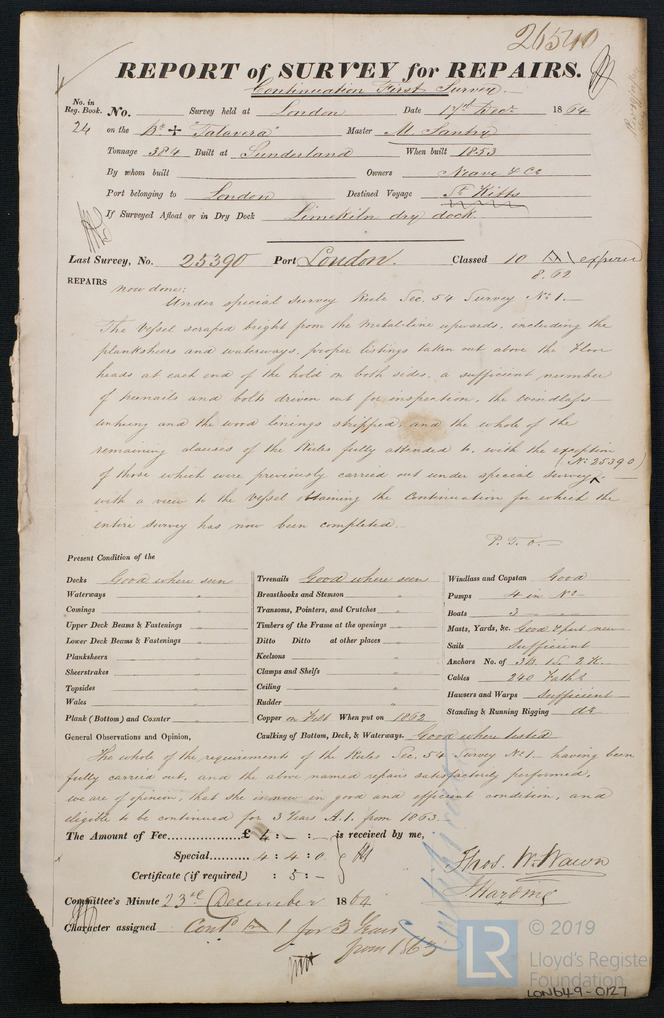 26540
REPORT of SURVEY for REPAIRS.
Continuation First Survey.
No. in Reg. Book. No. Survey held at London Date 17th Decr 1864
24 on the Bk "Talavera" Master
Tonnage 384 Built at Sunderland When built 1853
By whom built Owners & Co
Port belonging to London Destined Voyage St Kitts
If Surveyed Afloat or in Dry Dock Limekiln dry dock.
Last Survey, No. 25390 Port London. Classed 10 A
8.62
REPAIRS now done:
Under special Survey Rule Sec. 54 Survey No 1.
The Vessel scraped bright from the Metal line upwards, including the
planksheers and waterways, proper listings taken out above the Floor
heads at each end of the hold on both sides, a sufficient number
of treenails and bolts driven out for inspection, the windlass
unhung and the wood linings stripped, and the whole of the
remaining clauses of the Rules fully attended to, with the exception
of those which were previously carried out under special survey (No 25390)
with a view to the Vessel obtaining the Continuation for which the
entire survey has now been completed.
P. T. O.
Present Condition of the
Decks Good where seen
Waterways "
Comings "
Upper Deck Beams & Fastenings "
Lower Deck Beams & Fastenings "
Planksheers "
Sheerstrakes "
Topsides "
Wales "
Plank (Bottom) and Counter "
Treenails Good where seen
Breasthooks and Stemson "
Transoms, Pointers, and Crutches "
Timbers of the Frame at the openings "
Ditto Ditto at other places "
Keelsons "
Clamps and Shelfs "
Ceiling "
Rudder "
Copper on Felt When put on 1862
Windlass and Capstan Good
Pumps 4 in No
Boats 3 "
Masts, Yards, &c. Good & part new
Sails Sufficient
Anchors No. of 3 B. 1 S. 2 K.
Cables 240 Faths
Hawsers and Warps Sufficient
Standing & Running Rigging do
General Observations and Opinion, Caulking of Bottom, Deck, & Waterways. Good where tested
The whole of the requirements of the Rules Sec. 54 Survey No 1 having been
fully carried out, and the above named repairs satisfactorily performed,
we are of opinion, that she is now in good and efficient condition, and
eligible to be continued for 3 Years A.1. from 1863.
The Amount of Fee £ 4 : - : - is received by me,
Special 4 : 4 : 0
Certificate (if required) : 5 : -
Thos. W. Wawn
Committee's Minute 23rd December 1864
Character assigned Contd A 1 for 3 Years
from 1863
LR © 2019
Lloyd's Register
Foundation
LON649-0127